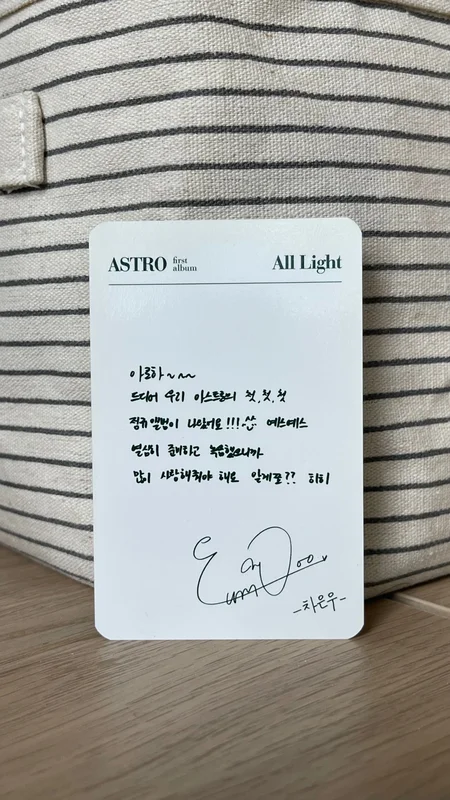 ASTRO first album All Light
아로하~~
드디어 우리 아스트로의 첫, 첫, 첫
정규앨범이 나왔어요!!! ^^ 예스예스
열심히 준비하고 녹음했으니까
많이 사랑해줘야 해요 알게쪄?? 히히
Eun Woo
-차은우-